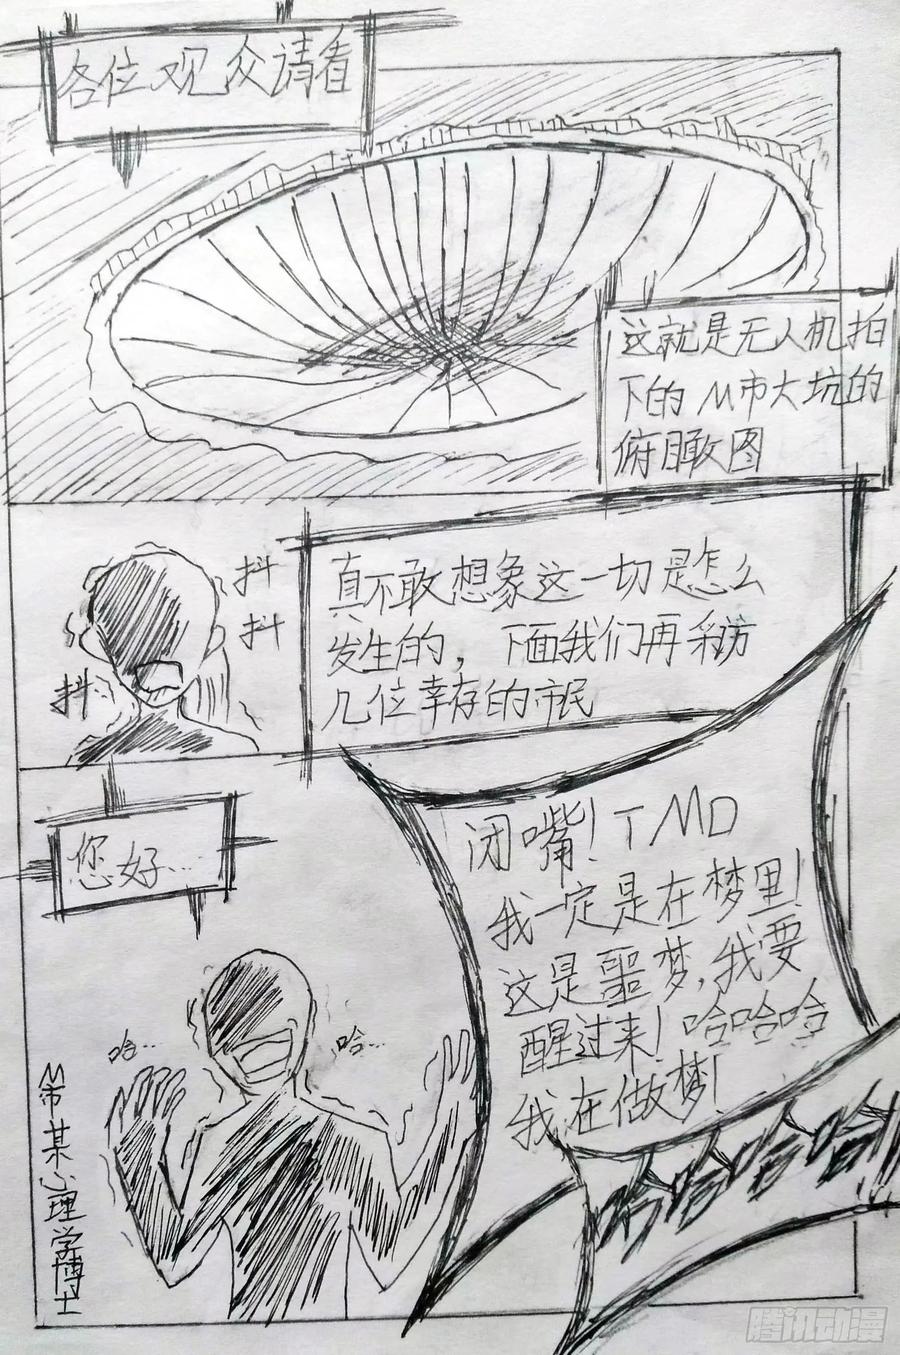 各位观众请看
这就是无人机拍
下的M市大坑的
俯瞰图
抖
抖
抖
真不敢想象这一切是怎么
发生的，下面我们再采访
几位幸存的市民
您好…
闭嘴！TMD
我一定是在梦里！
这是噩梦，我要
醒过来！哈哈哈
我在做梦！
哈…
哈…
M市某心理学博士
哈哈哈哈
腾讯动漫